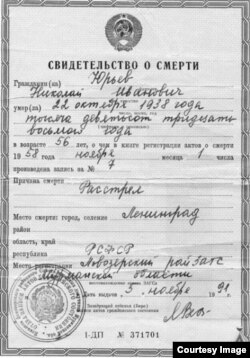 СВИДЕТЕЛЬСТВО О СМЕРТИ
Гражданин(ка) Юрьев
Николай Иванович
умер(ла) 22 октября 1938 года
тысяча девятьсот тридцать
восьмого года
в возрасте 56 лет, о чем в книге регистрации актов о смерти
19 58 года ноября месяца 1 числа
произведена запись за № 7
Причина смерти Расстрел
Место смерти: город, селение Ленинград
район
область, край
республика РСФСР
Место регистрации Ловозерский райзагс
Мурманской области
Дата выдачи 5 ноября 1991
I-ДП № 371701
Courtesy Image